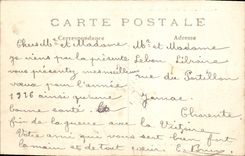 CARTE POSTALE
Correspondance
Adresse
Chers Mr et Madame
je viens par la présente
vous présenter mes meilleurs
vœux pour l'année
1916 ainsi qu'une
bonne santé
fin de la guerre avec la Victoire
Votre ami qui vous serre bien fort
la main et de tout cœur.
Mr et Madame
Lebon Libraire
rue du
Jarnac
Charente